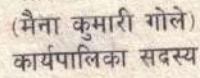 (मैना कुमारी गोले)
कार्यपालिका सदस्य